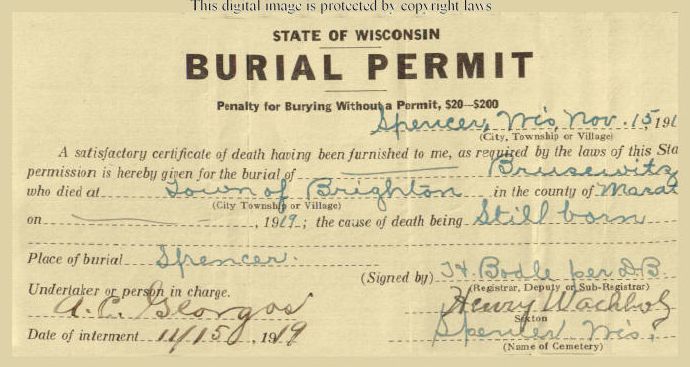 This digital image is protected by copyright laws
STATE OF WISCONSIN
BURIAL PERMIT
Penalty for Burying Without a Permit, $20—$200
Spencer, Wis, Nov. 15, 191
(City, Township or Village)
A satisfactory certificate of death having been furnished to me, as required by the laws of this Sta
permission is hereby given for the burial of Brusewitz
who died at Town of Brighton in the county of Marat
(City Township or Village)
on , 1919; the cause of death being Still born
Place of burial Spencer.
(Signed by) Bodle per D.B.
(Registrar, Deputy or Sub-Registrar)
Undertaker or person in charge.
A. C. Henry Wachholz
Sexton
Date of interment 11/15, 1919 Spencer Wis.
(Name of Cemetery)